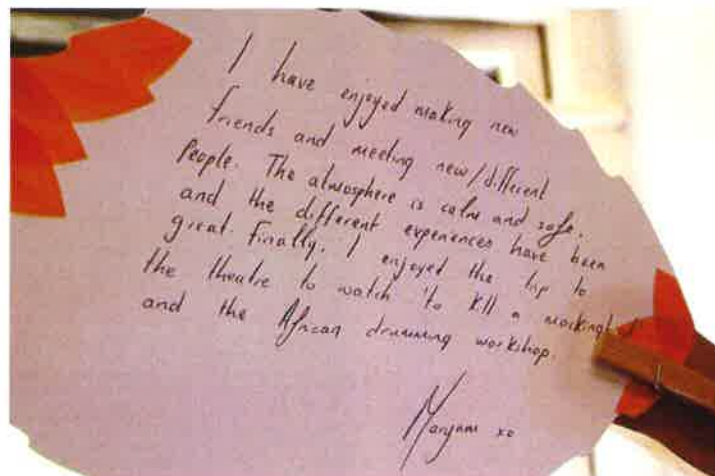 I have enjoyed making new
friends and meeting new/different
People. The atmosphere is calm and safe,
and the different experiences have been
great. Finally, I enjoyed the trip to
the theatre to watch 'to kill a mockingb
and the African drumming workshop.
Maryam xo